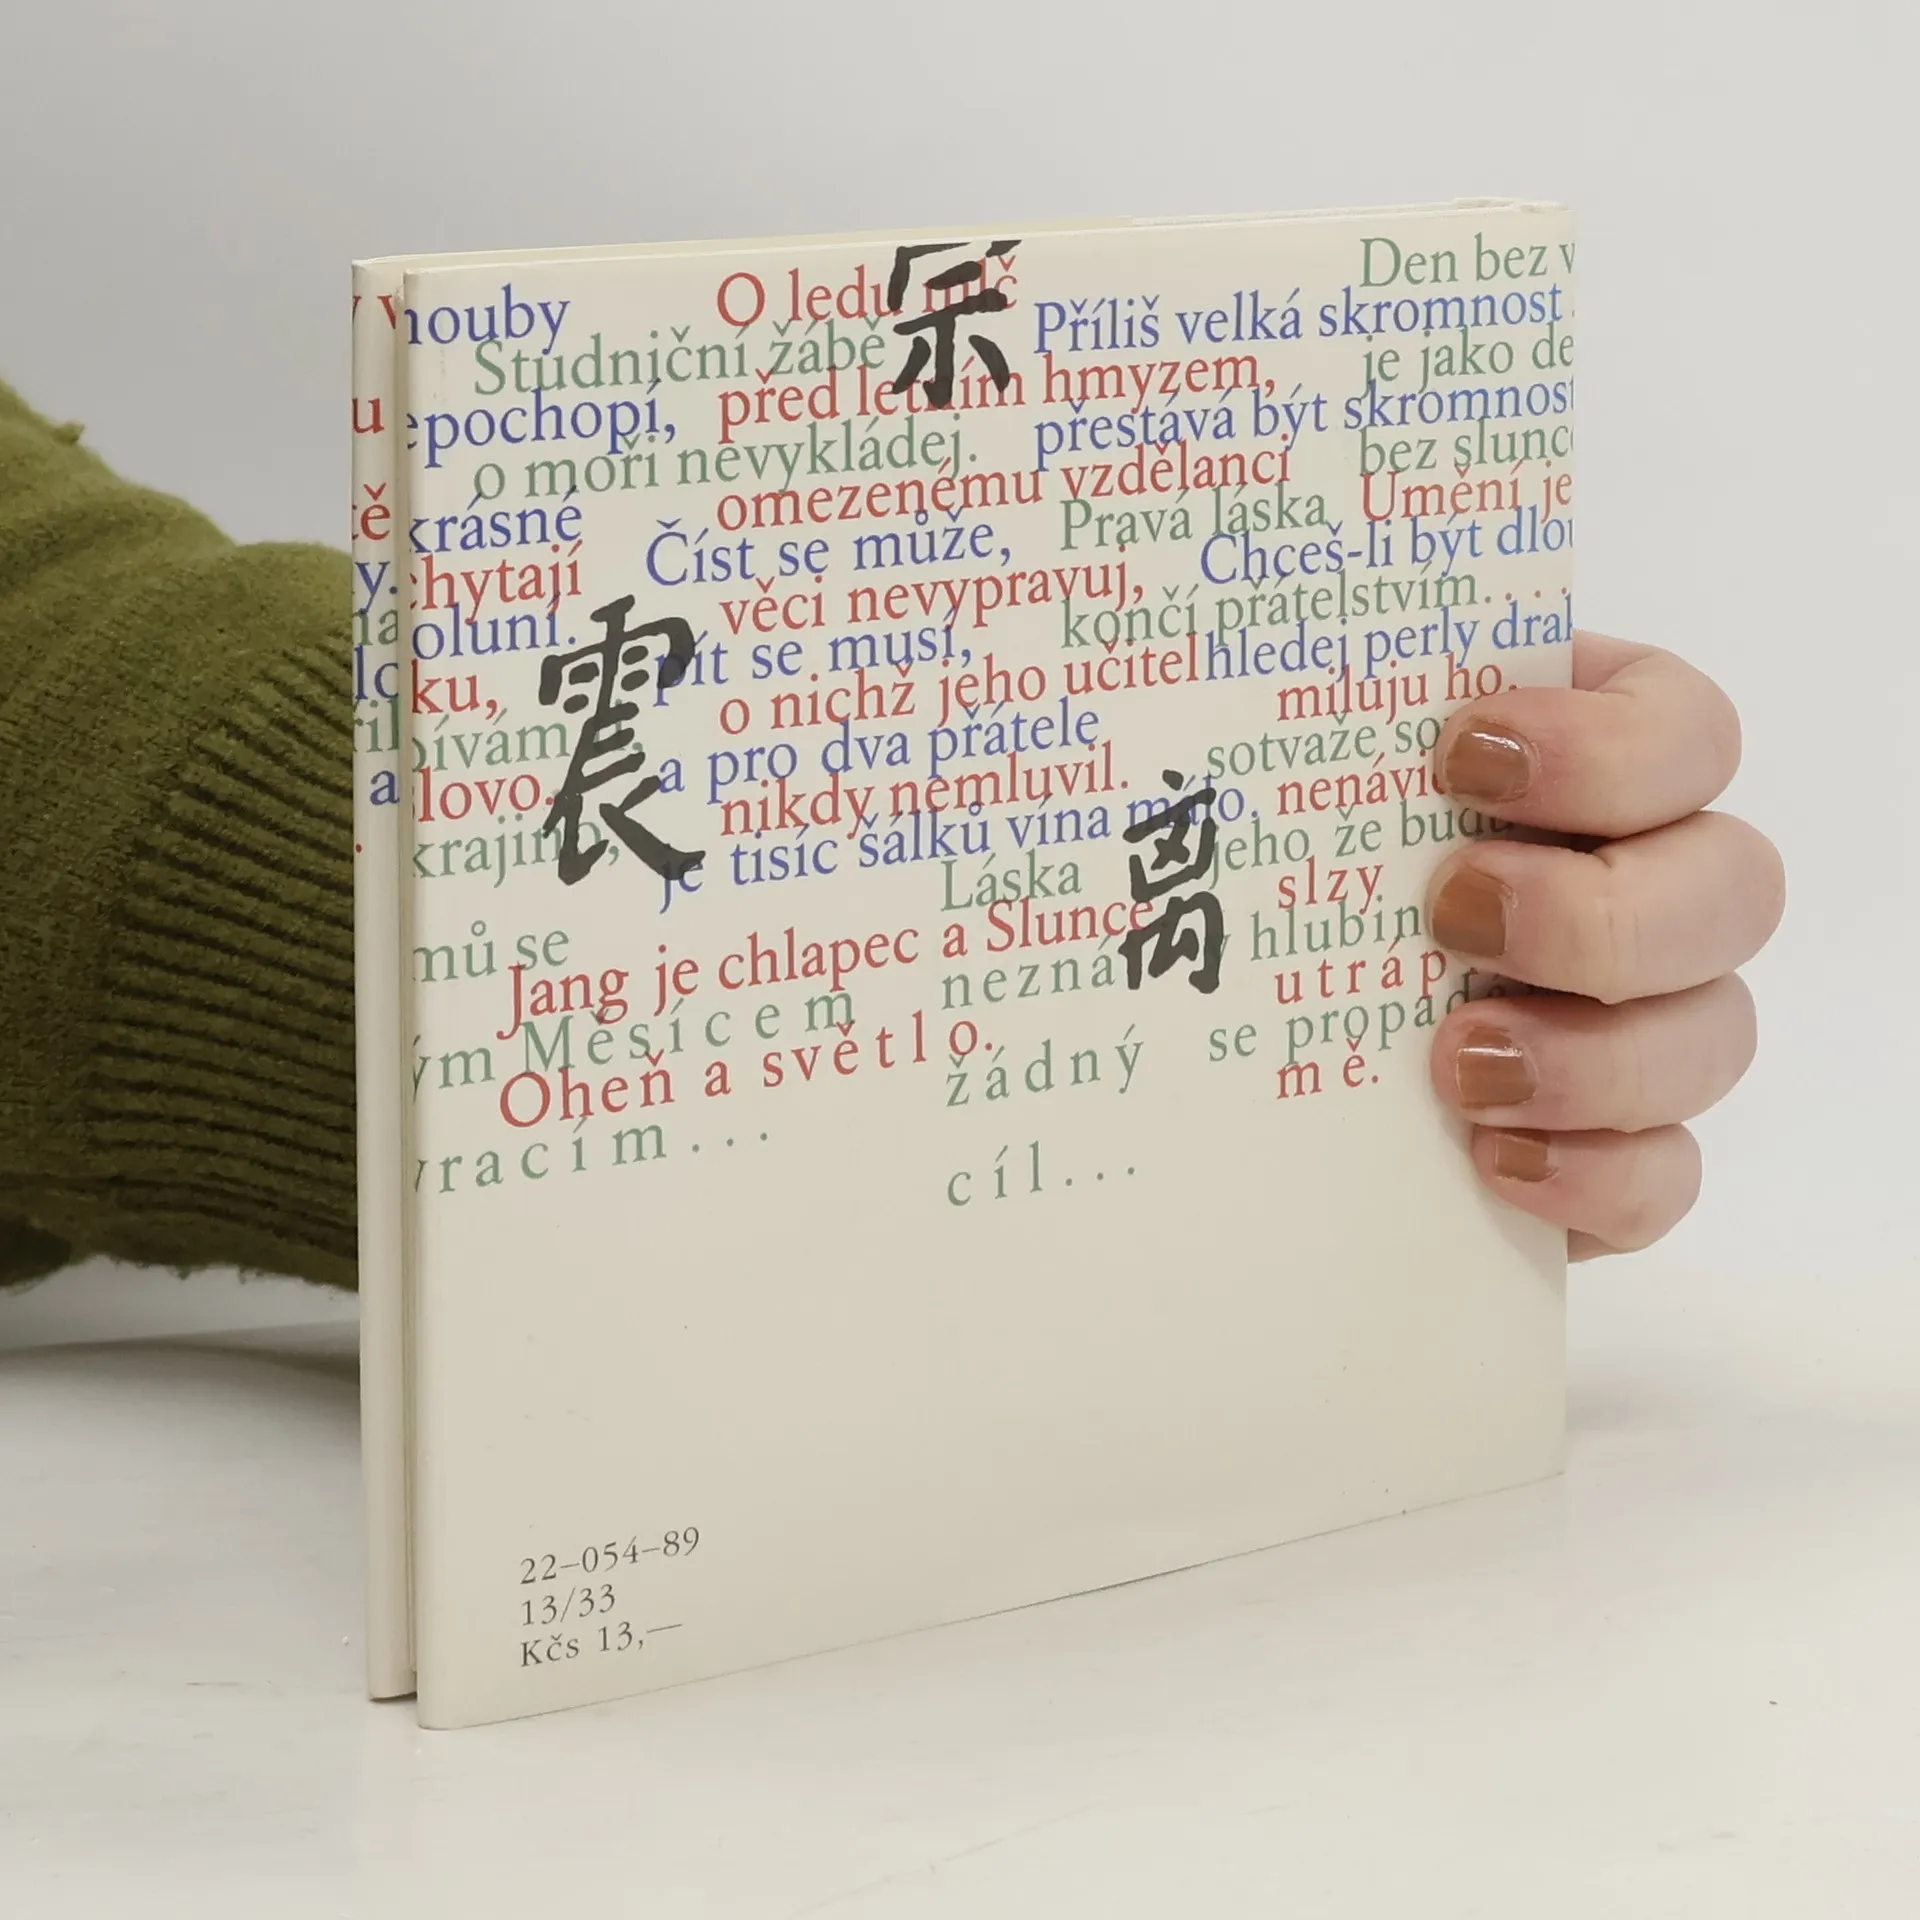 houby
O ledu mlč
Den bez v
Studniční žábě
Příliš velká skromnost
epochopí,
před letním hmyzem,
je jako de
o moři nevykládej.
přestává být skromnost
krásné
omezenému vzdělanci
bez slunce
Číst se může,
Pravá láska
Umění je
chytají
věci nevypravuj,
Chceš-li být dlou
oluní.
pít se musí,
končí přátelstvím....
ku,
o nichž jeho učitel
hledej perly drak
震
a pro dva přátele
miluju ho.
lovo.
nikdy nemluvil.
sotvaže so
krajino,
je tisíc šálků vína málo.
nenávid
Láska
jeho že budu
mů se
Jang je chlapec a Slunce
slzy
ým Měsícem
nezná
v hlubin
Oheň a světlo.
utráp
žádný
se propad
vracím...
mě.
cíl...
22–054–89
13/33
Kčs 13,—